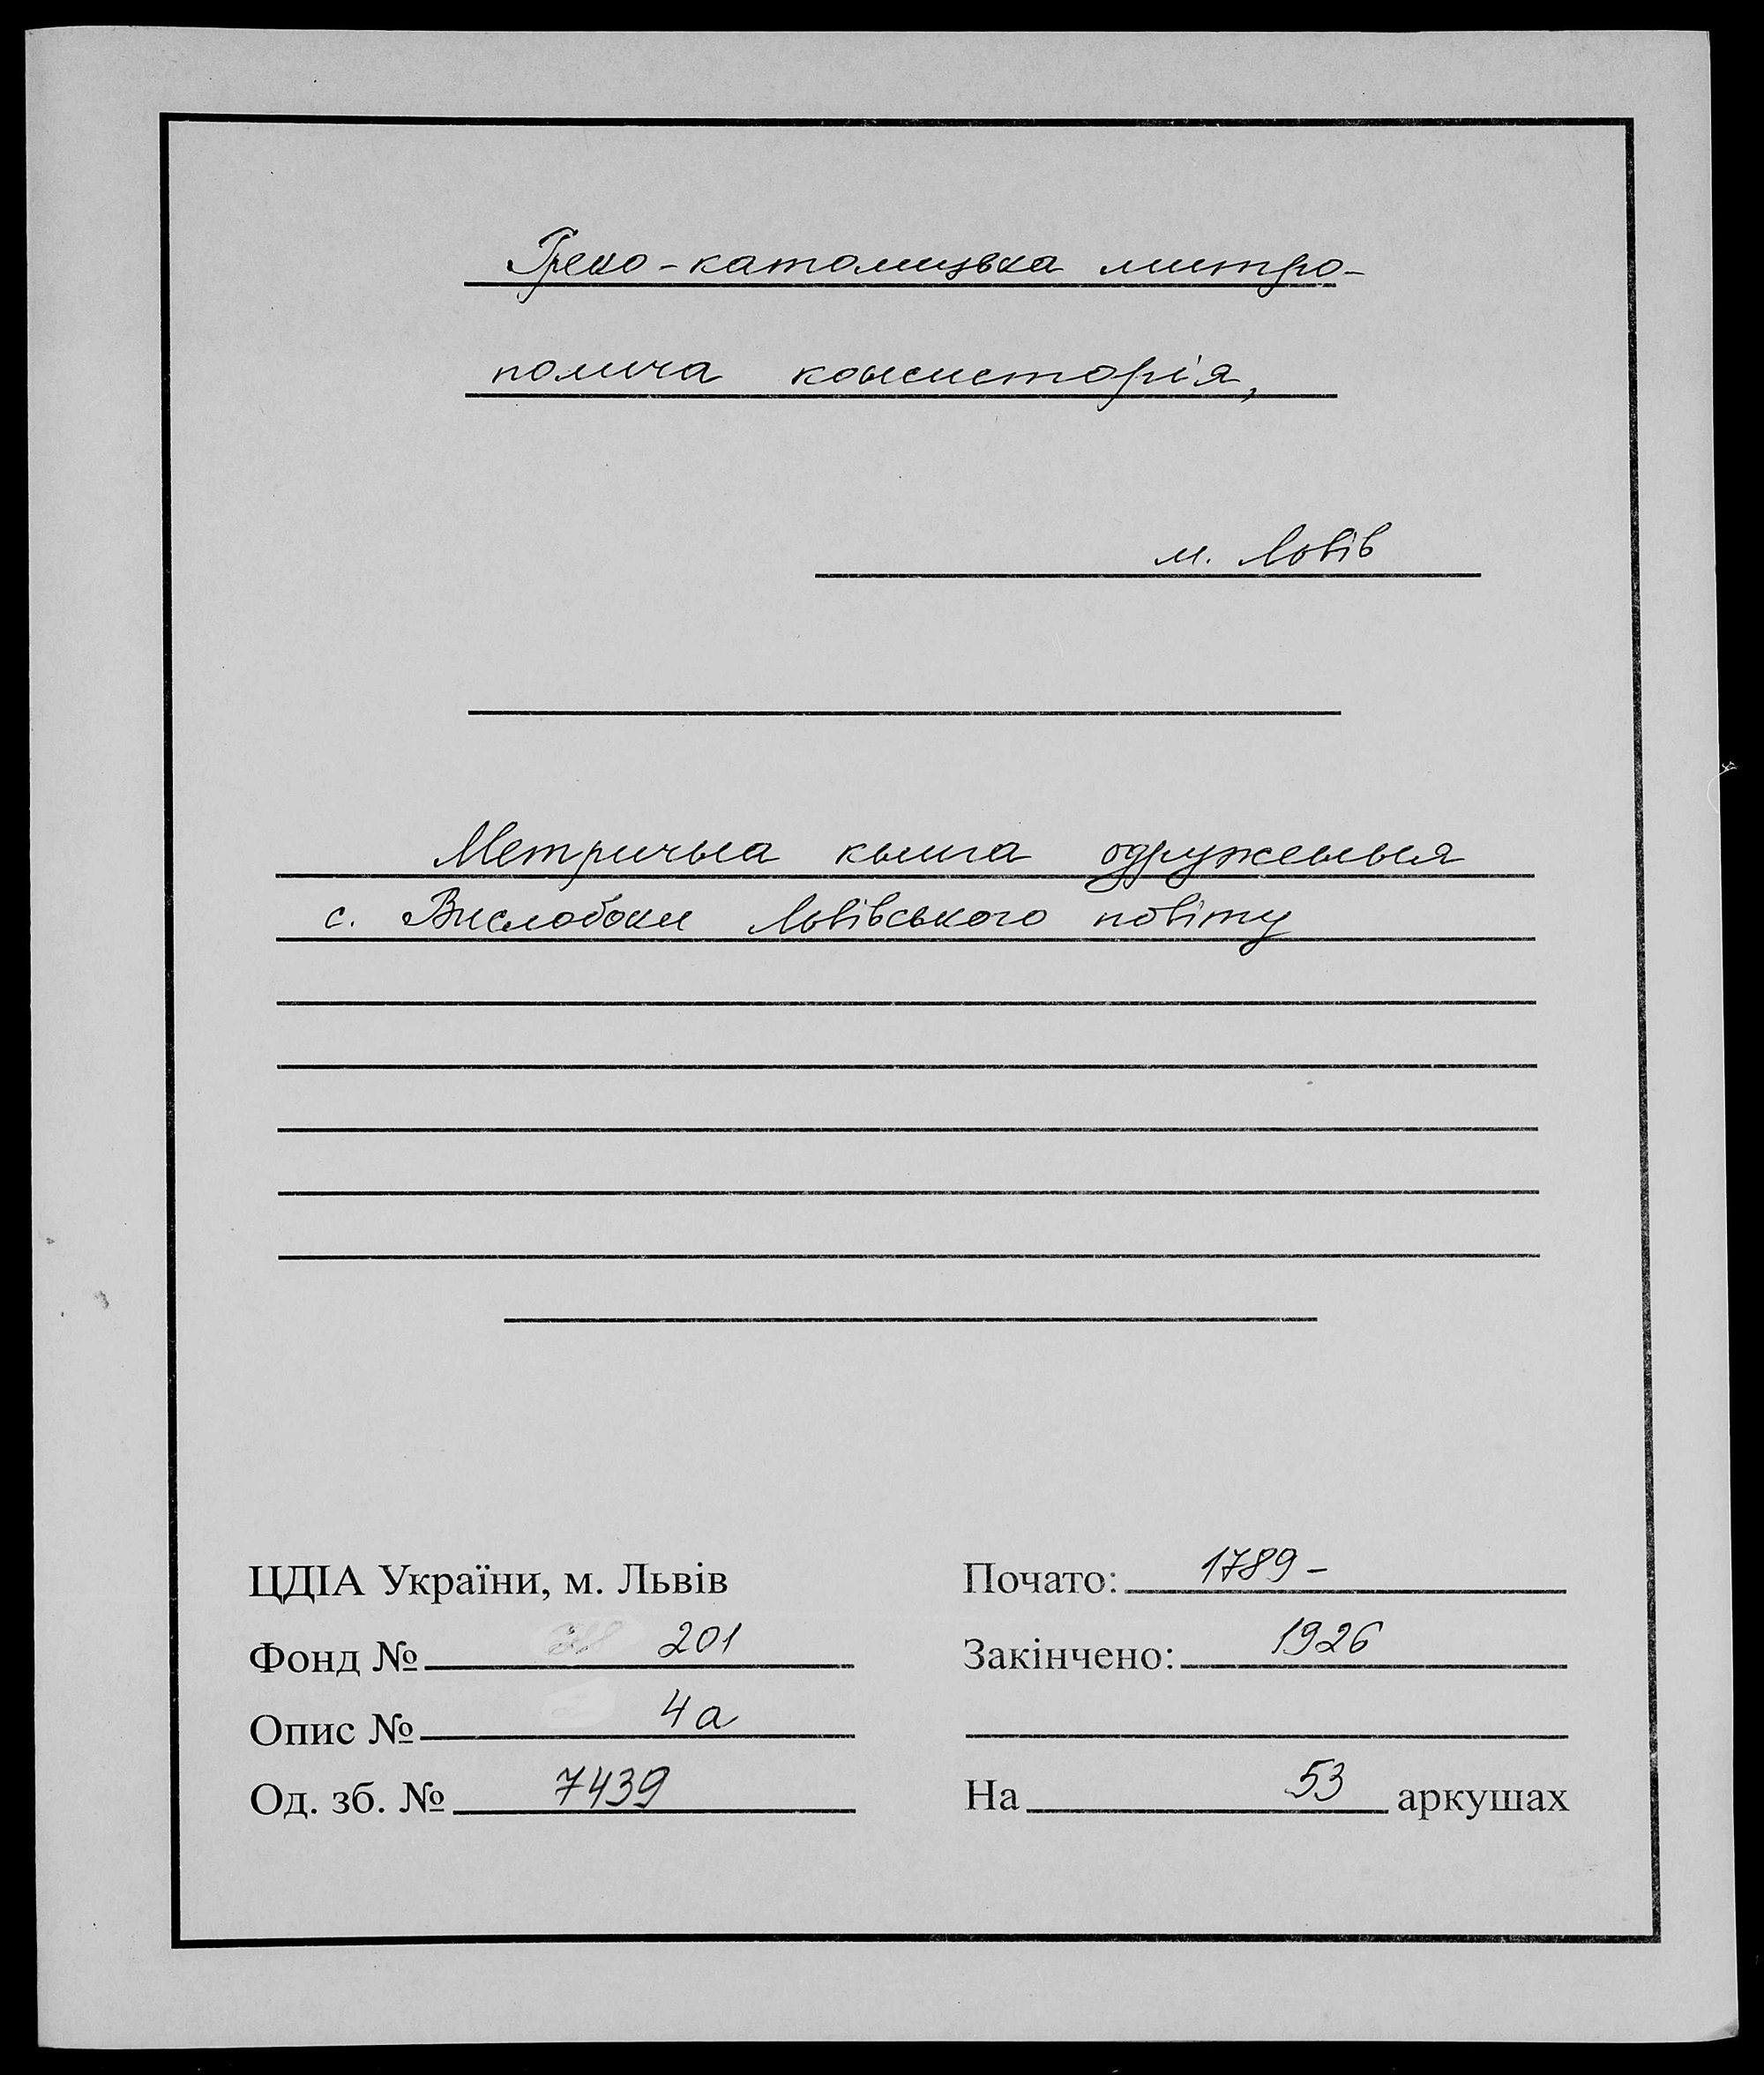 Греко-католицька митро-
полича консисторія,
м. Львів
Метрична книга одруження
с. Вислобоки Львівського повіту
ЦДІА України, м. Львів
Фонд № 201
Опис № 4а
Од. зб. № 7439
Почато: 1789-
Закінчено: 1926
На 53 аркушах